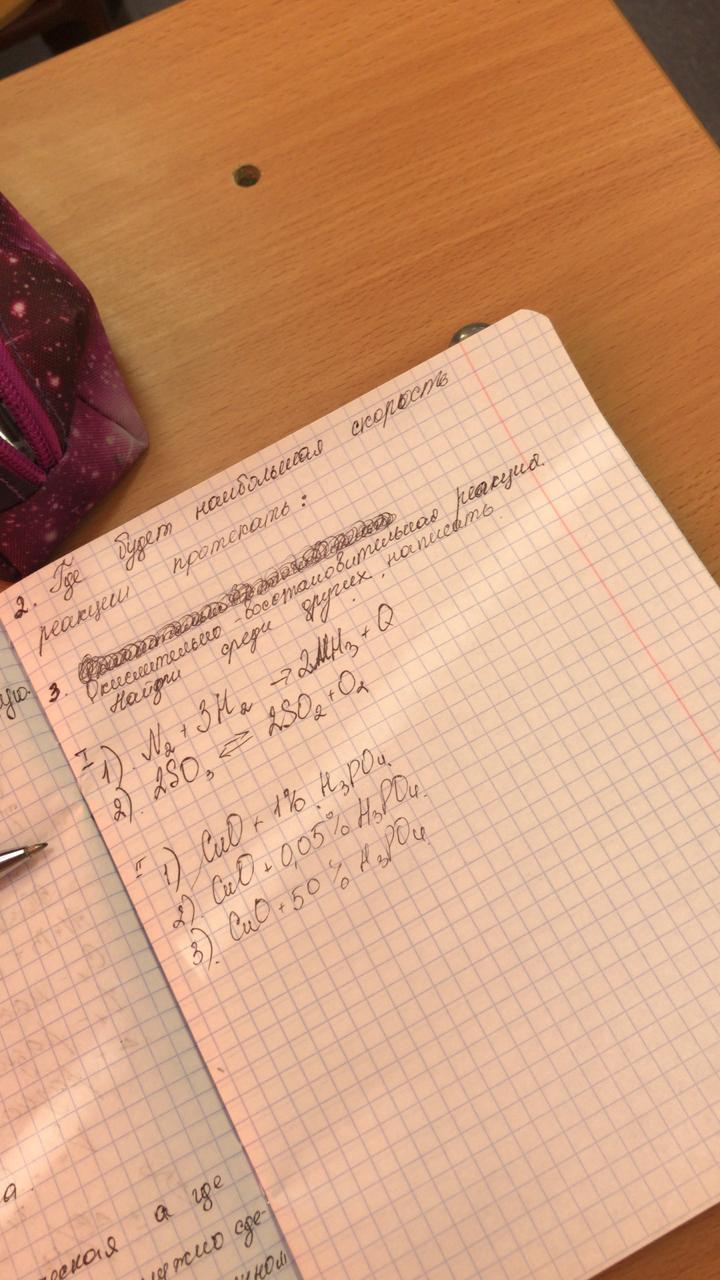 2. Где будет наибольшая скорость
реакции протекать:
3. Окислительно-восстановительная реакция.
Найди среди других, написать.
I 1). N₂ + 3H₂ → 2NH₃ + Q
2). 2SO₃ ⇄ 2SO₂ + O₂
II 1) CuO + 1% H₃PO₄.
2). CuO + 0,05% H₃PO₄.
3). CuO + 50% H₃PO₄.
ую.
а.
еская а где
нужно сде-